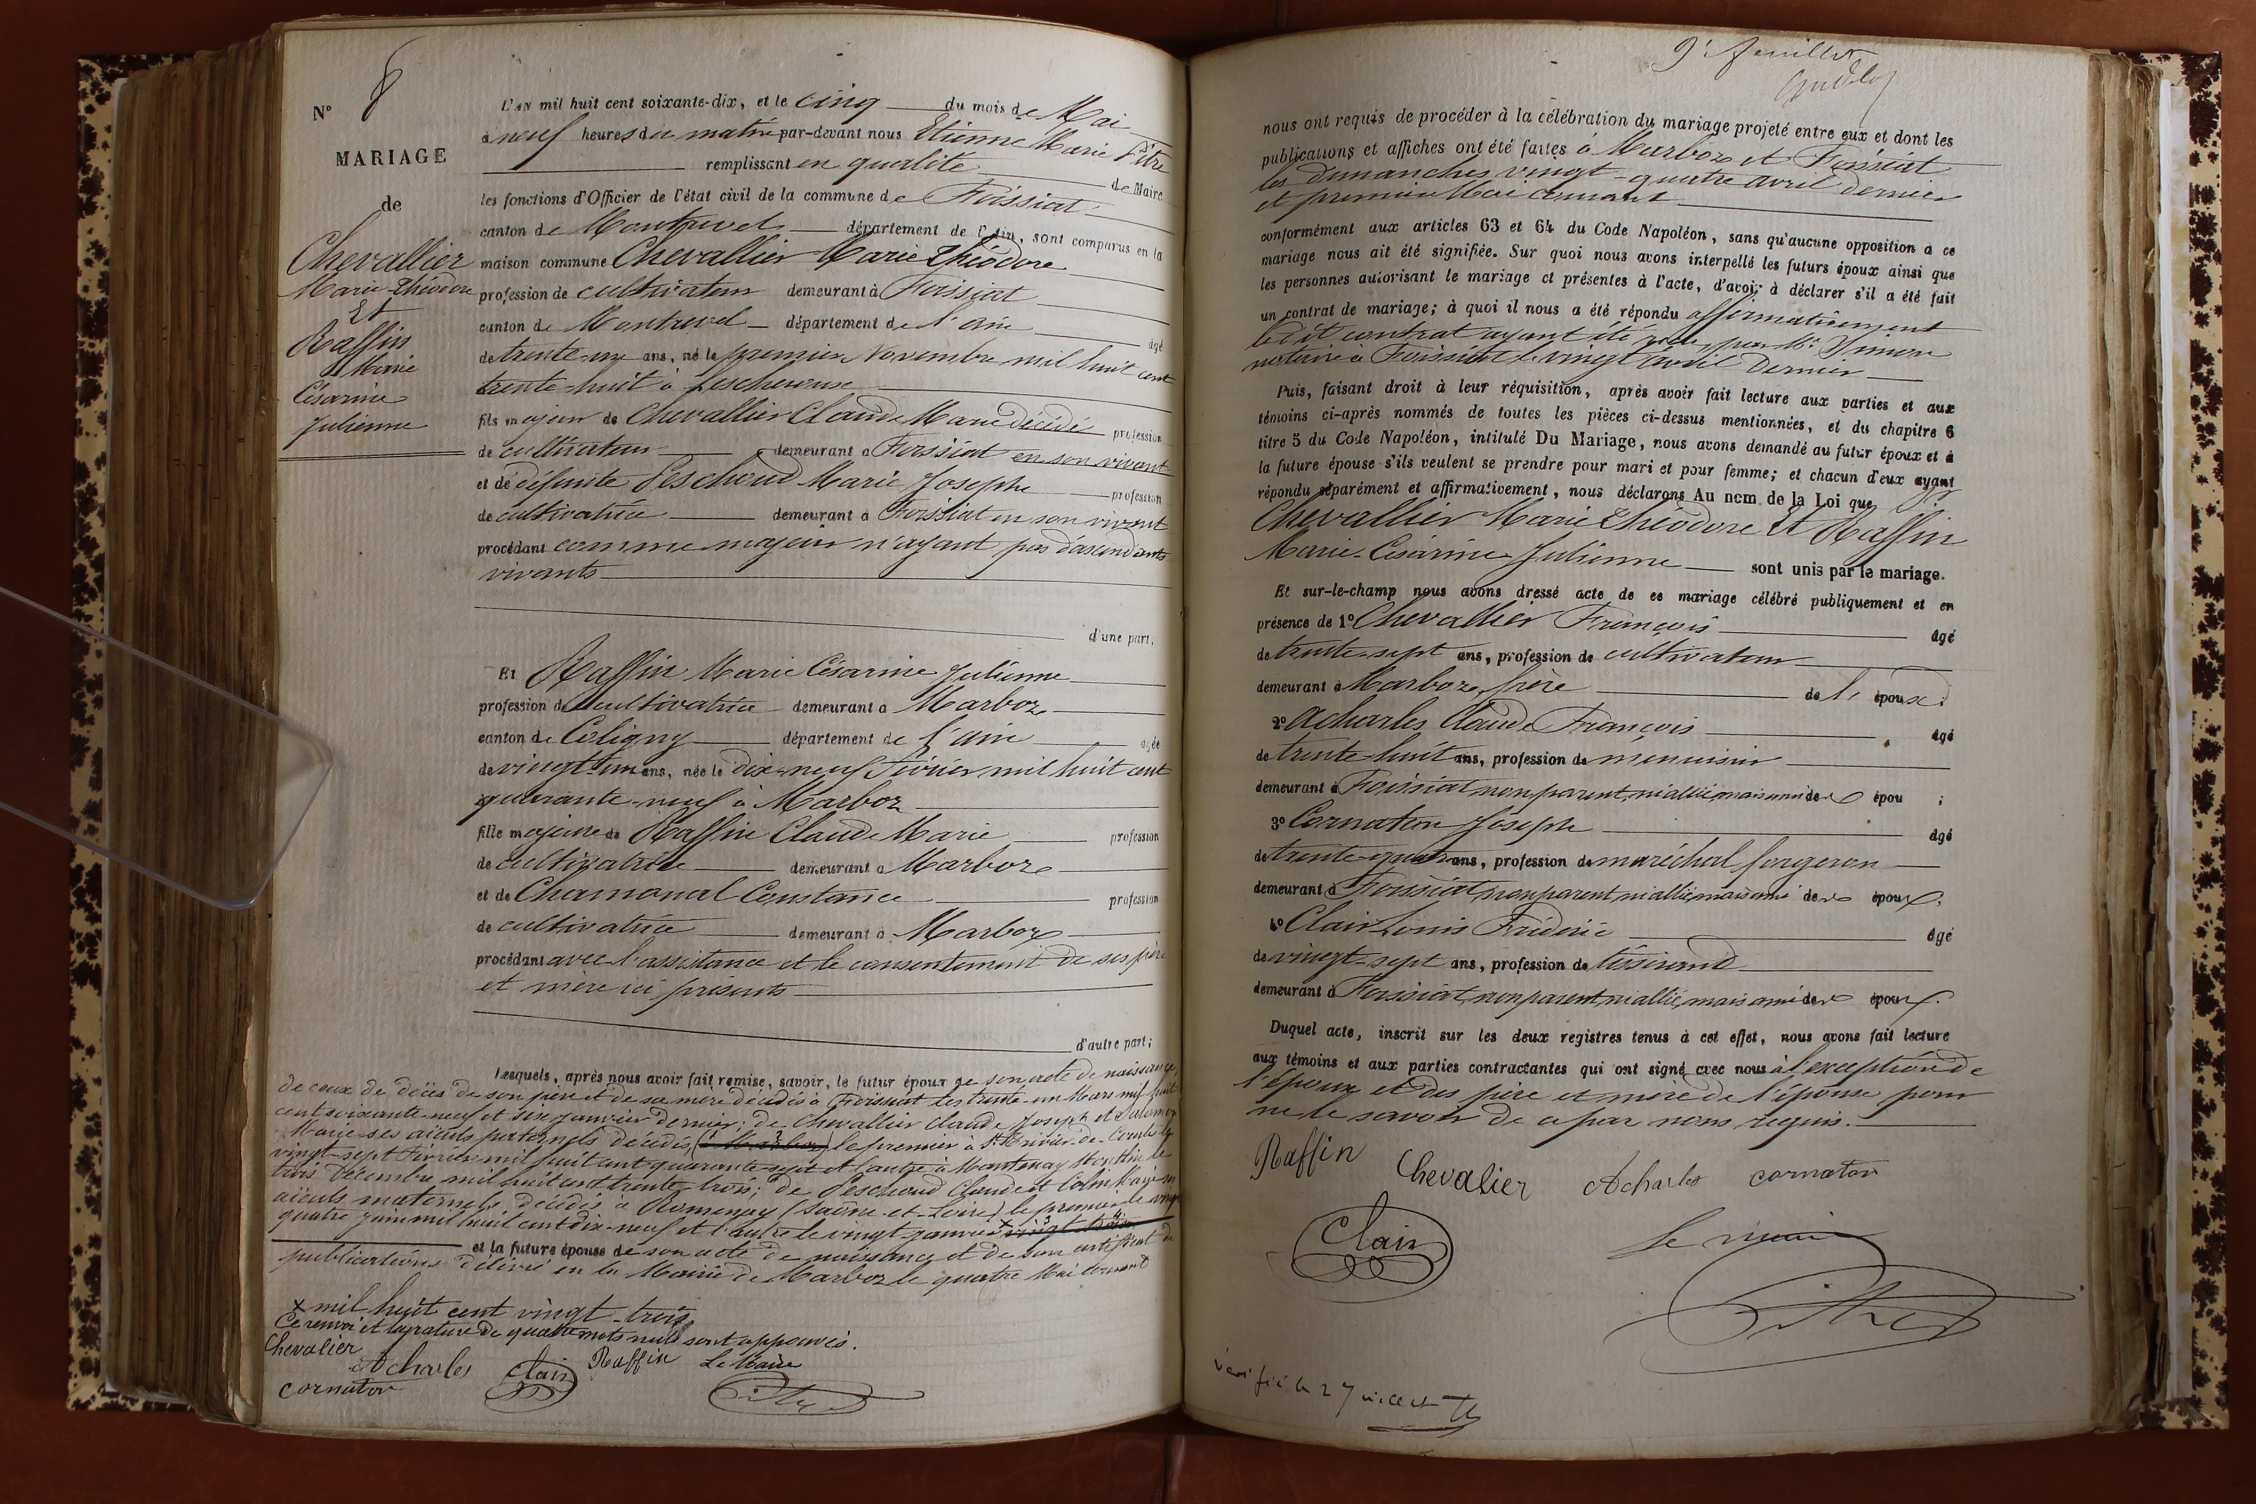 N° 8
MARIAGE
de
Chevallier
Marie Théodore
Et
Raffin
Marie
Césarine
Julienne
L'AN mil huit cent soixante-dix, et le cinq du mois de Mai
à neuf heures du matin par-devant nous Etienne Marie Pitre
remplissant en qualité de Maire
les fonctions d'Officier de l'état civil de la commune de Foissiat
canton de Montrevel département de l'Ain, sont comparus en la
maison commune Chevallier Marie Théodore
profession de cultivateur demeurant à Foissiat
canton de Montrevel département de l'ain âgé
de trente-un ans, né le premier Novembre mil huit cent
trente-huit à Lescheroux
fils majeur de Chevallier Claude Marie décédé profession
de cultivateur demeurant à Foissiat en son vivant
et de défunte Peschoud Marie Josephe profession
de cultivatrice demeurant à Foissiat en son vivant
procédant comme majeur n'ayant pas d'ascendants
vivants
d'une part.
Et Raffin Marie Césarine Julienne
profession de cultivatrice demeurant à Marboz
canton de Coligny département de l'ain âgée
de vingt-un ans, née le dix-neuf Février mil huit cent
quarante-neuf à Marboz
fille majeure de Raffin Claude Marie profession
de cultivatrice demeurant à Marboz
et de Chamonal Constance profession
de cultivatrice demeurant à Marboz
procédant avec l'assistance et le consentement de ses père
et mère ici présents
d'autre part;
Lesquels, après nous avoir fait remise, savoir, le futur époux de son acte de naissance,
de ceux de décès de son père et de sa mère décédés à Foissiat les trente-un Mars mil huit
cent soixante-neuf et six janvier dernier; de Chevallier Claude Joseph et
Marie ses aïeuls paternels décédés, le premier à St Trivier-de-Courtes le
vingt-sept Février mil huit cent quarante-sept et l'autre à Mantenay Montlin le
trois Décembre mil huit cent trente-trois; de Peschoud Claude et Colin Marie
aïeuls maternels décédés à Romenay (Saône-et-Loire) le premier le vingt
quatre juin mil huit cent dix-neuf et l'autre le vingt janvier x vingt trois
et la future épouse de son acte de naissance et de son certificat de
publications délivré en la Mairie de Marboz le quatre Mai courant
x mil huit cent vingt-trois
Ce renvoi et la rature de quatre mots nuls sont approuvés.
Chevalier
Acharles Clair Raffin Le Maire
cornaton Pitre
9e feuillet
nous ont requis de procéder à la célébration du mariage projeté entre eux et dont les
publications et affiches ont été faites à Marboz et Foissiat
les dimanches vingt-quatre avril dernier
et premier Mai courant
conformément aux articles 63 et 64 du Code Napoléon, sans qu'aucune opposition à ce
mariage nous ait été signifiée. Sur quoi nous avons interpellé les futurs époux ainsi que
les personnes autorisant le mariage et présentes à l'acte, d'avoir à déclarer s'il a été fait
un contrat de mariage; à quoi il nous a été répondu affirmativement
ledit contrat ayant été reçu par Me Simon
notaire à Foissiat le vingt avril dernier
Puis, faisant droit à leur réquisition, après avoir fait lecture aux parties et aux
témoins ci-après nommés de toutes les pièces ci-dessus mentionnées, et du chapitre 6
titre 5 du Code Napoléon, intitulé Du Mariage, nous avons demandé au futur époux et à
la future épouse s'ils veulent se prendre pour mari et pour femme; et chacun d'eux ayant
répondu séparément et affirmativement, nous déclarons Au nom de la Loi que
Chevallier Marie Théodore Et Raffin
Marie-Césarine Julienne sont unis par le mariage.
Et sur-le-champ nous avons dressé acte de ce mariage célébré publiquement et en
présence de 1° Chevallier François âgé
de trente-sept ans, profession de cultivateur
demeurant à Marboz frère de l'époux;
2° Acharles Claude François âgé
de trente-huit ans, profession de menuisier
demeurant à Foissiat non parent, ni allié, mais ami des épou ;
3° Cornaton Joseph âgé
de trente-quatre ans, profession de maréchal forgeron
demeurant à Foissiat, non parent ni allié mais ami des époux;
4° Clair Louis Frédéric âgé
de vingt-sept ans, profession de tisserand
demeurant à Foissiat, non parent, ni allié, mais ami des époux.
Duquel acte, inscrit sur les deux registres tenus à cet effet, nous avons fait lecture
aux témoins et aux parties contractantes qui ont signé avec nous à l'exception de
l'époux et des père et mère de l'épouse pour
ne le savoir de ce par nous requis.
Raffin Chevalier Acharles cornaton
Clair Le maire
Pitre
Vérifié le 27 juillet